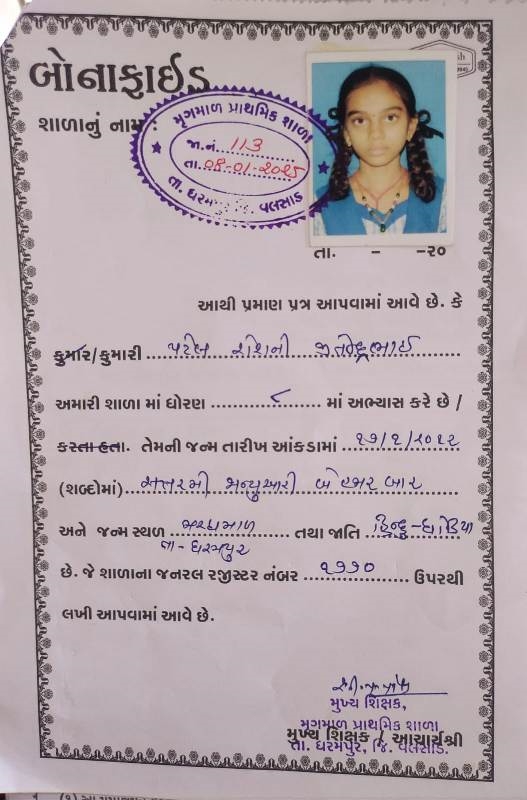 બોનાફાઈડ
શાળાનું નામ :
મૃગમાળ પ્રાથમિક શાળા
જા.નં. 113
તા. 08-01-2025
તા. ધરમપુર, જિ. વલસાડ
તા. - -૨૦
આથી પ્રમાણ પત્ર આપવામાં આવે છે. કે
કુમાર/કુમારી પટેલ રોશની જીતેન્દ્રભાઈ
અમારી શાળા માં ધોરણ ૮ માં અભ્યાસ કરે છે /
કરતા હતા. તેમની જન્મ તારીખ આંકડામાં ૧૭/૧/૨૦૧૨
(શબ્દોમાં) સત્તરમી જાન્યુઆરી બે હજાર બાર
અને જન્મ સ્થળ તથા જાતિ હિન્દુ-ધોડિયા
તા-ધરમપુર
છે. જે શાળાના જનરલ રજીસ્ટર નંબર ૧૧૧૦ ઉપરથી
લખી આપવામાં આવે છે.
મુખ્ય શિક્ષક,
મૃગમાળ પ્રાથમિક શાળા
મુખ્ય શિક્ષક / આચાર્યશ્રી
તા. ધરમપુર, જિ. વલસાડ.